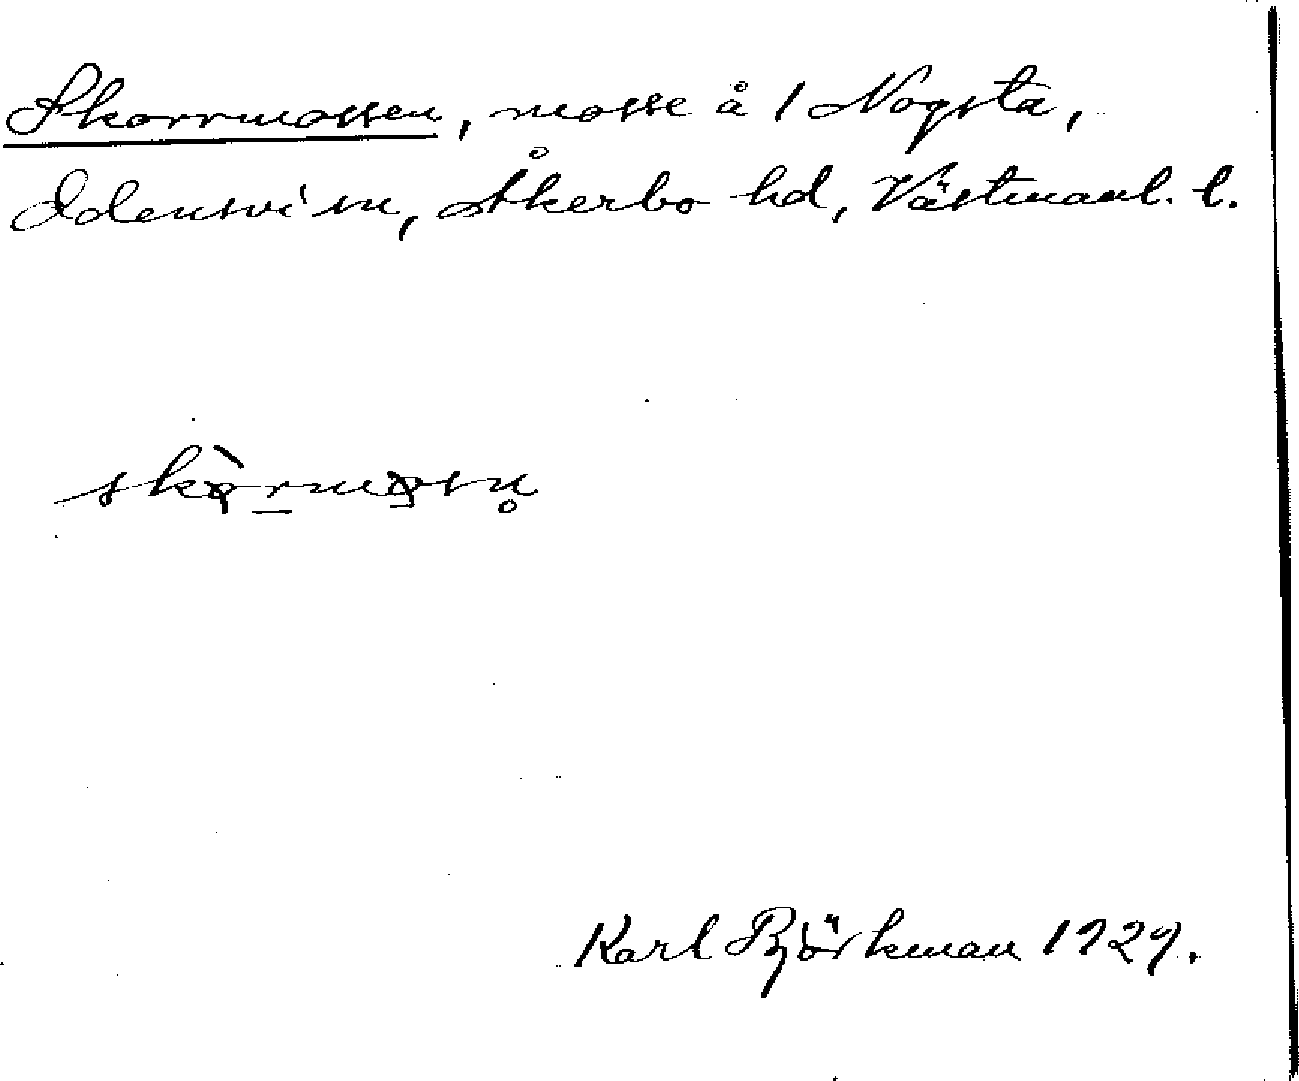 Skorrmossen, mosse å 1 Nogsta,
Odensvi sn, Åkerbo hd, Västmanl. l.
Karl Björkman 1929.